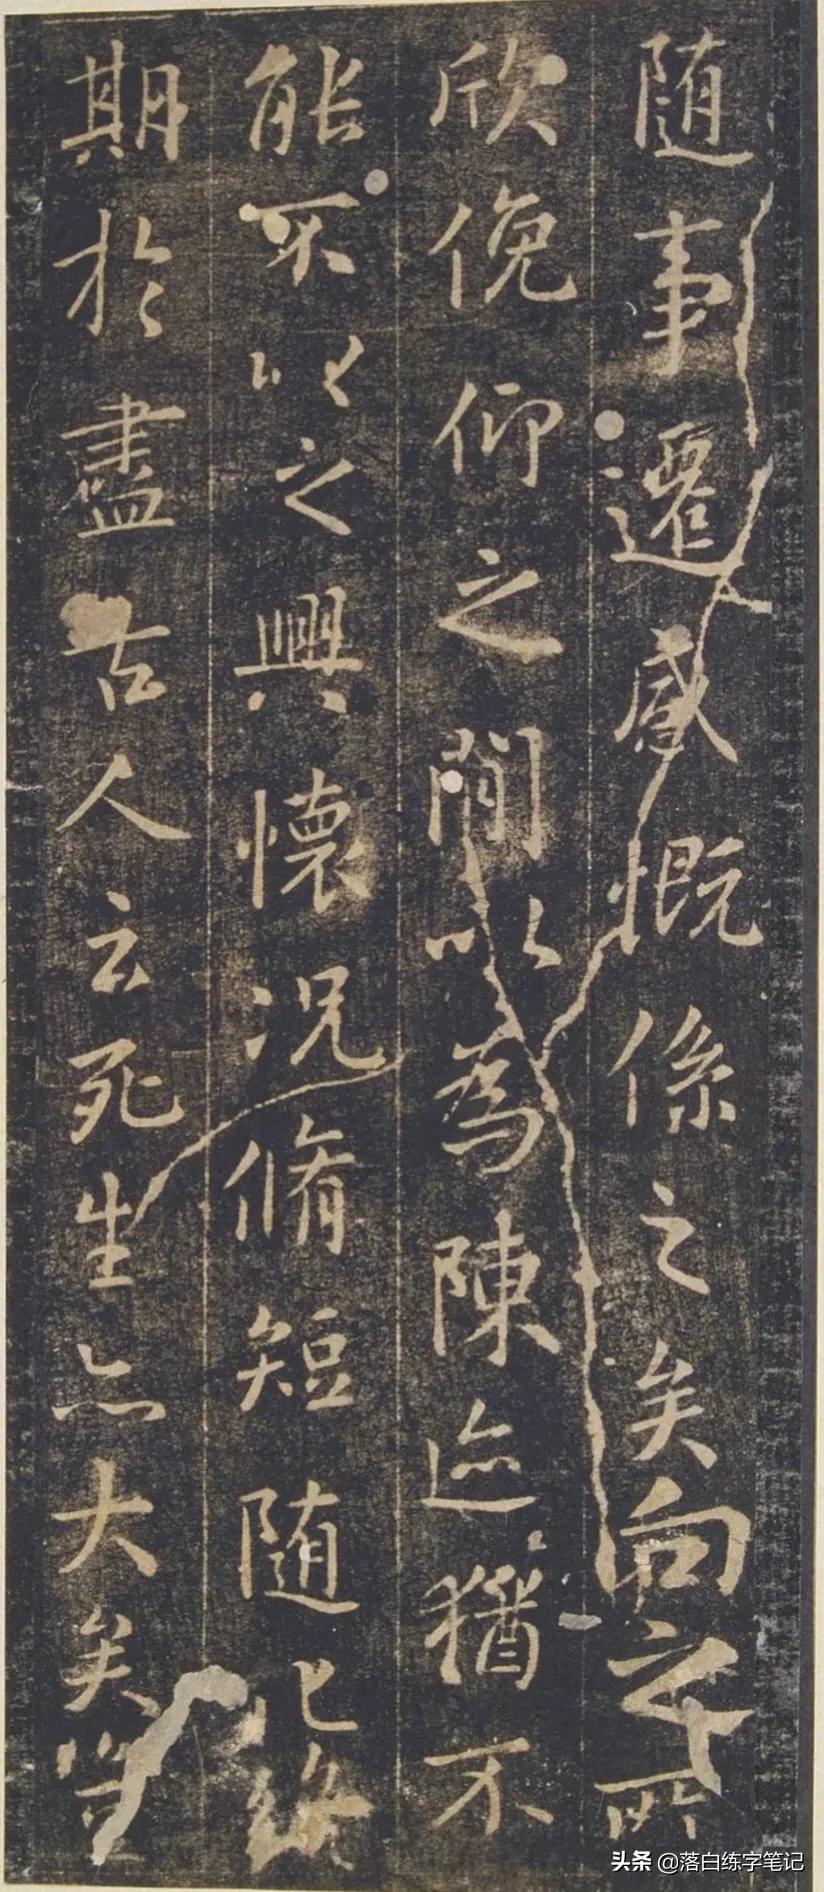 随事遷感慨係之矣向之所
欣俛仰之間以為陳迹猶不
能不以之興懷況脩短随化終
期於盡古人云死生亦大矣豈
头条 @落白练字笔记